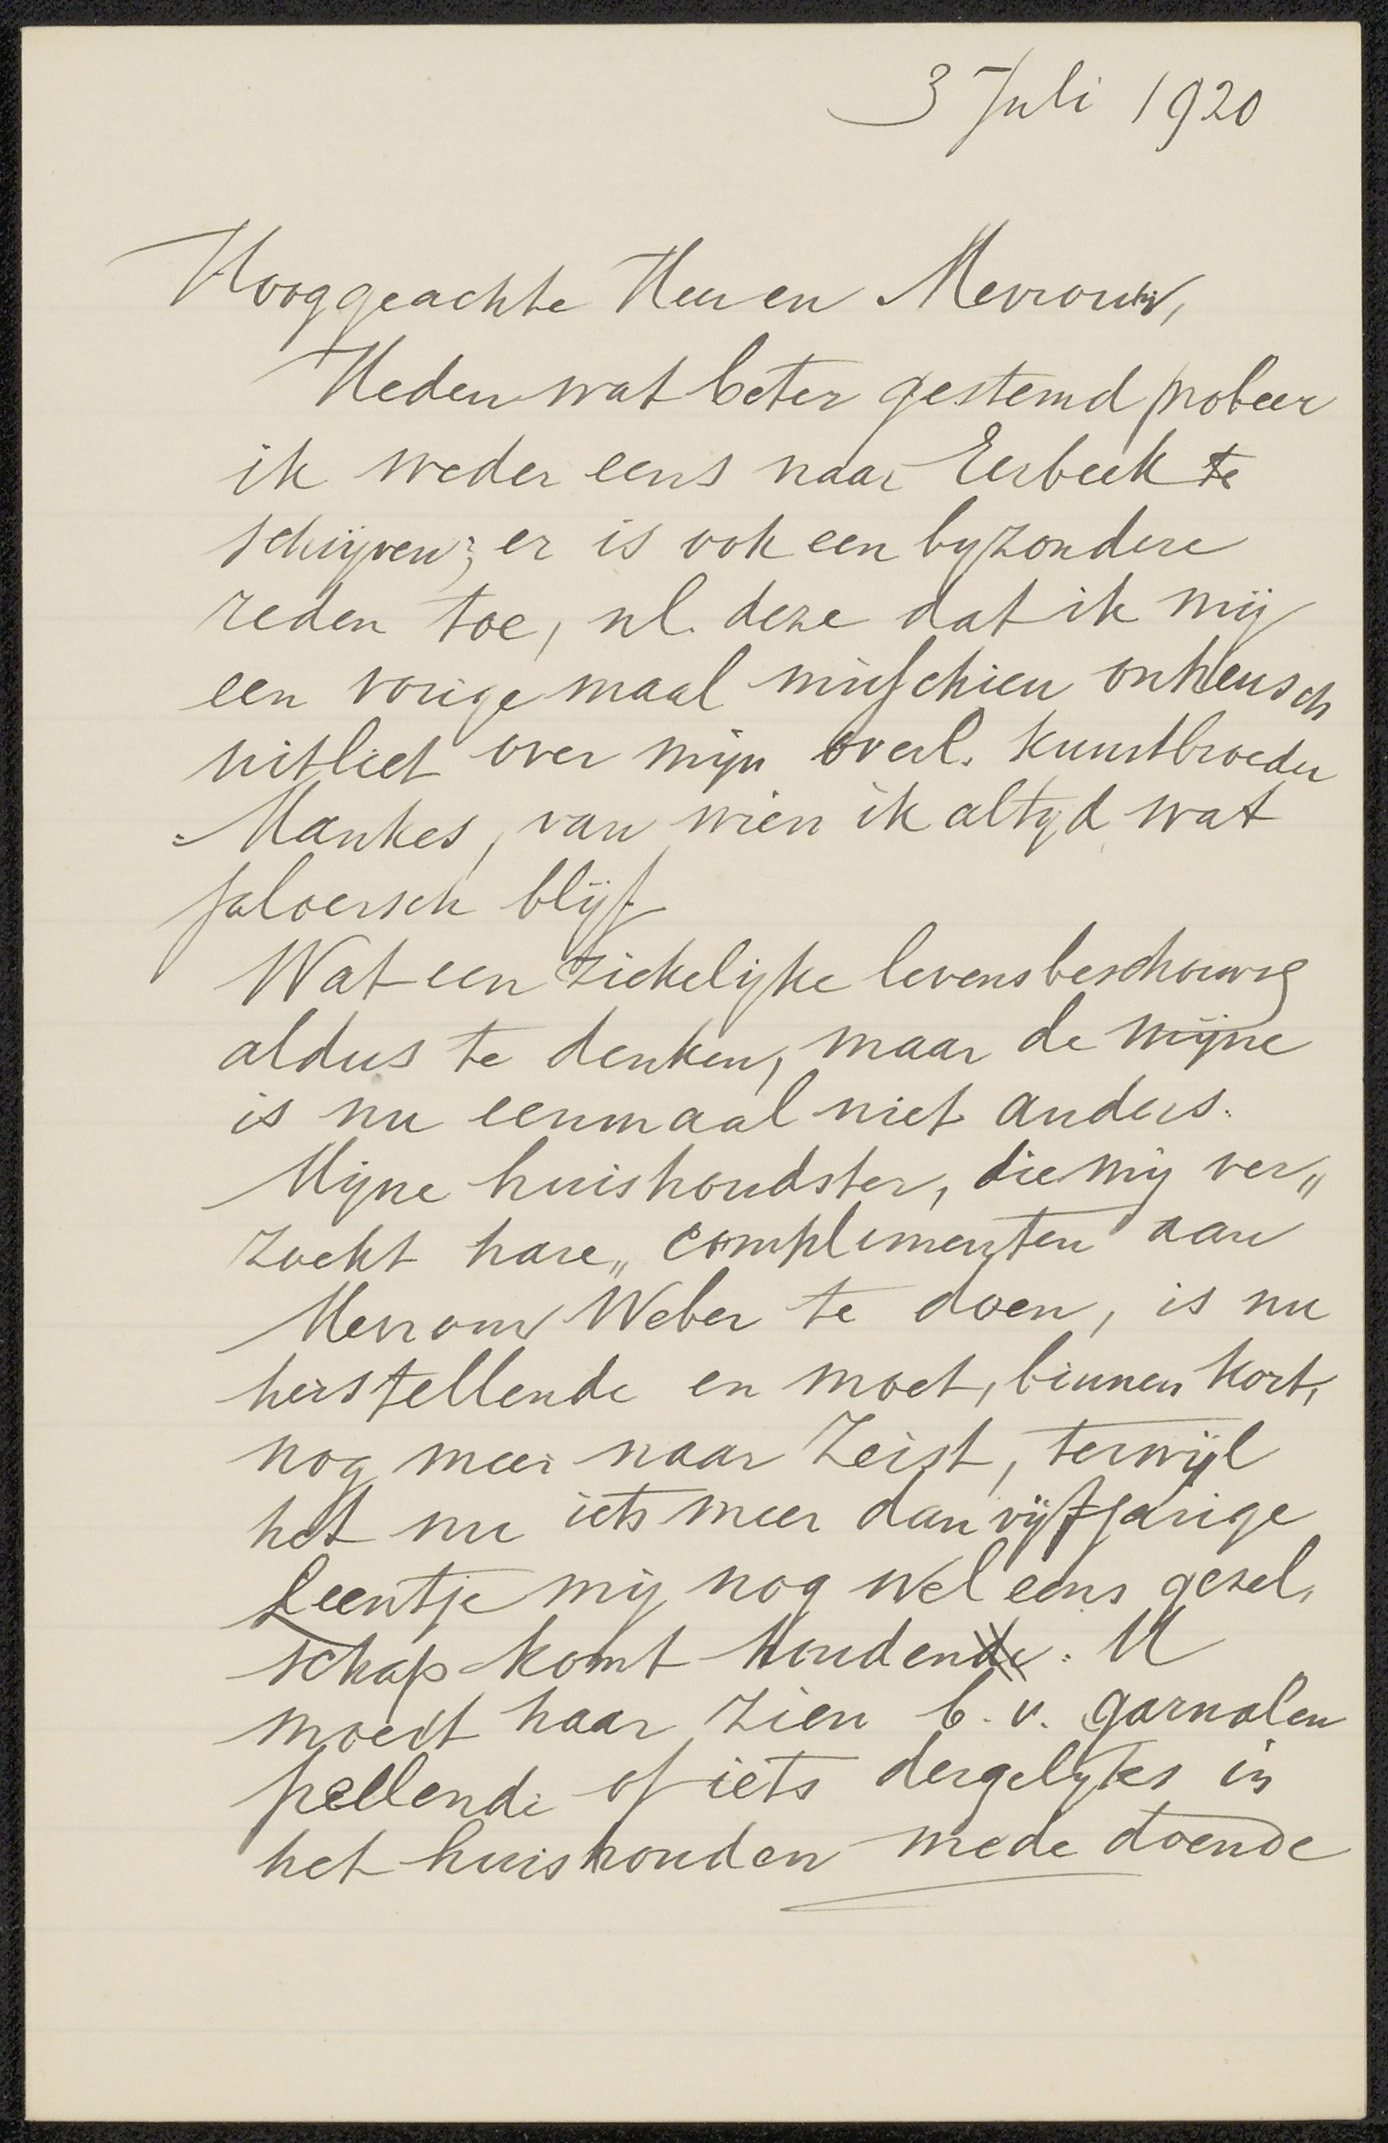 3 Juli 1920
Hooggeachte Heer en Mevrouw,
Heden wat beter gestemd probeer
ik weder eens naar Eerbeek te
schrijven; er is ook een byzondere
reden toe, nl. deze dat ik mij
een vorige maal misschien onheusch
uitliet over mijn overl. kunstbroeder
Mankes, van wien ik altyd wat
jaloersch blijf.
Wat een ziekelijke levensbeschouwg
aldus te denken, maar de mijne
is nu eenmaal niet anders.
Mijne huishoudster, die mij ver„
zoekt hare „complimenten aan
Mevrouw Weber te doen, is nu
herstellende en moet, binnen kort,
nog meer naar Zeist, terwijl
het nu iets meer dan vijfjarige
Leentje mij nog wel eens gezel„
schap komt houdende. U
moest haar zien b.v. garnalen
pellende of iets dergelykes in
het huishouden mede doende